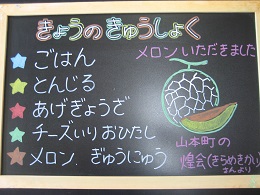 きょうのきゅうしょく
ごはん
とんじる
あげぎょうざ
チーズいりおひたし
メロン ぎゅうにゅう
メロンいただきました
山本町の
煌会(きらめきかい)
さんより